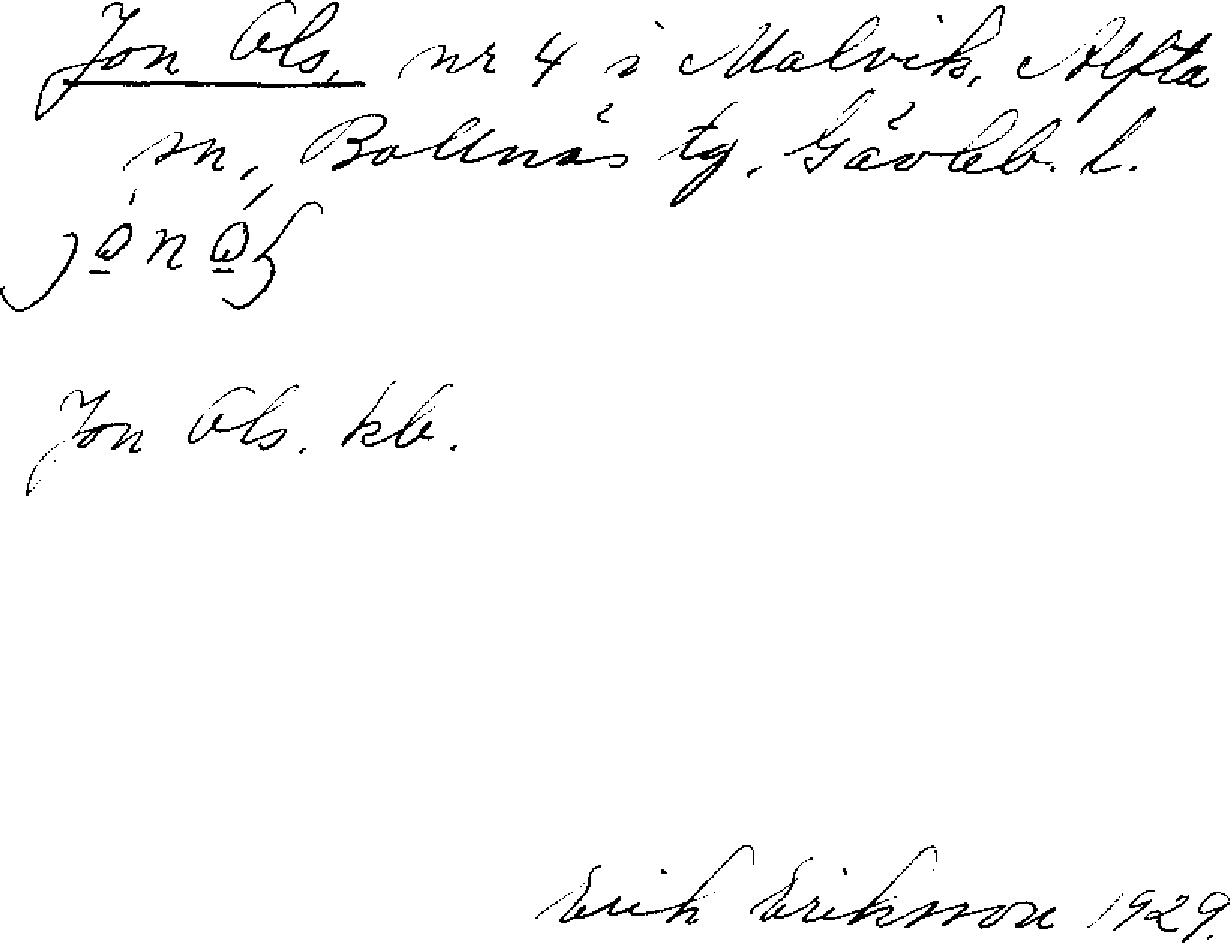 Jon Ols, nr 4 i Malvik, Alfta
sn, Bollnäs tg, Gävleb. l.
Jon Ols. kb.
Erik Eriksson 1929.